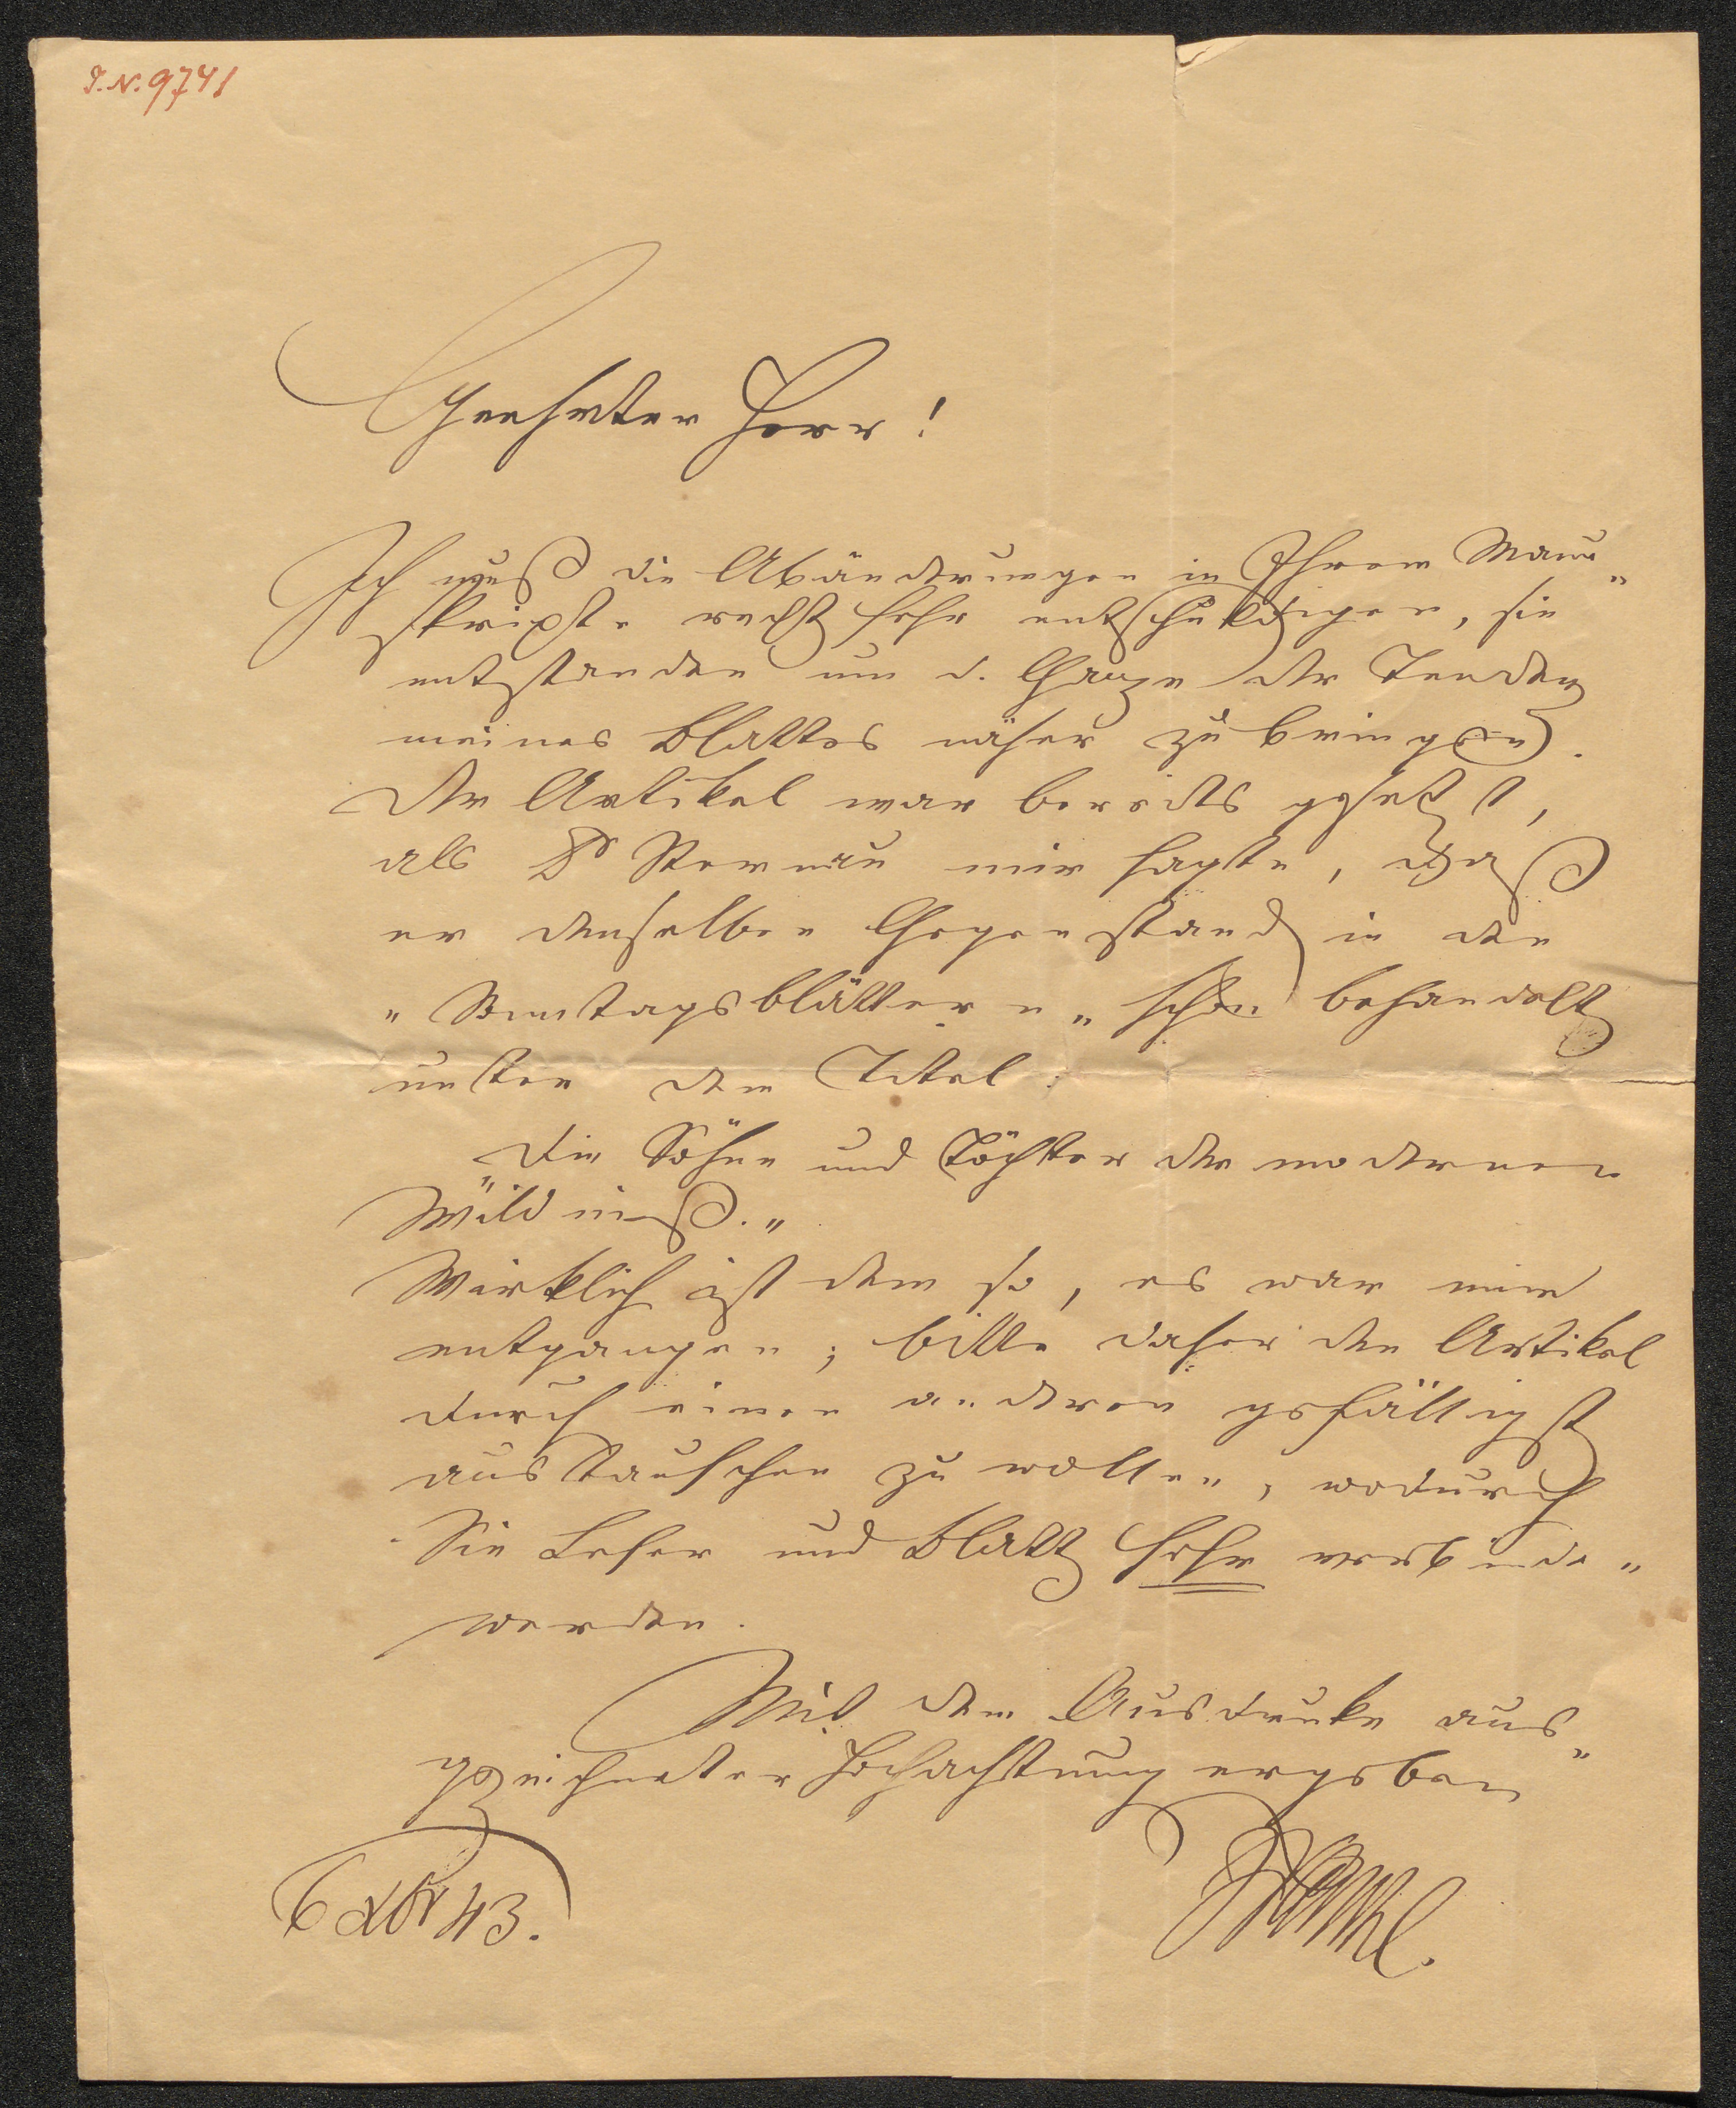 I.N. 9741
Geehrter Herr!
Ich muß die Abänderungen in Ihrem Manu„
skripte recht sehr entschuldigen, sie
entstanden um d. Ganze der Tendenz
meines Blattes näher zu bringen.
Der Artikel war bereits gesetzt,
als Dr Sternau mir sagte, daß
er denselben Gegenstand in den
„Sonntagsblättern„ schon behandelt
unter dem Titel:
Die Söhne und Töchter der modernen
"Wildniß.„
Wirklich ist dem so, es war mir
entgangen; bitte daher den Artikel
durch einen anderen gefälligst
austauschen zu wollen, wodurch
Sie Leser und Blatt sehr verbinden
werden.
Mit dem Ausdrucke aus„
gezeichneter Hochachtung ergeben
Frankl.
6 Xbr 43.